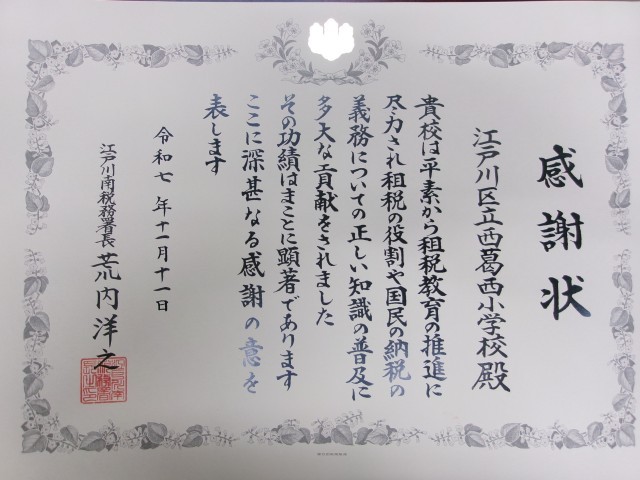 感謝状
江戸川区立西葛西小学校殿
貴校は平素から租税教育の推進に
尽力され租税の役割や国民の納税の
義務についての正しい知識の普及に
多大な貢献をされました
その功績はまことに顕著であります
ここに深甚なる感謝の意を
表します
令和七年十一月十一日
江戸川南税務署長 荒内洋之